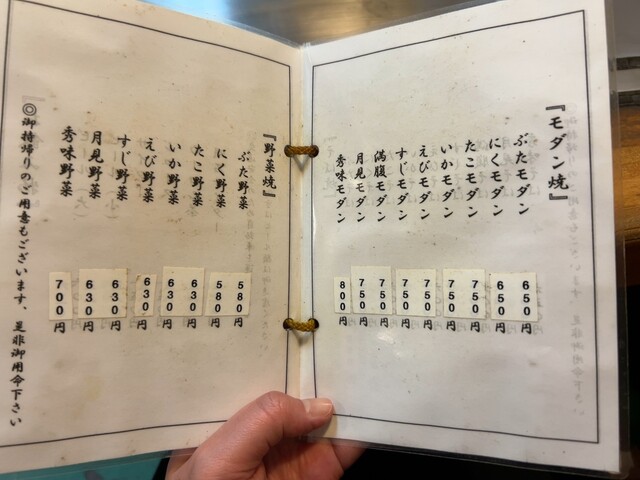 『モダン焼』
ぶたモダン 650円
にくモダン 650円
たこモダン 750円
いかモダン 750円
えびモダン 750円
すじモダン 750円
満腹モダン 750円
月見モダン 750円
秀味モダン 800円
『野菜焼』
ぶた野菜 580円
にく野菜 580円
たこ野菜 630円
いか野菜 630円
えび野菜 630円
すじ野菜 630円
月見野菜 630円
秀味野菜 700円
◎御持帰りのご用意もございます、是非御用命下さい